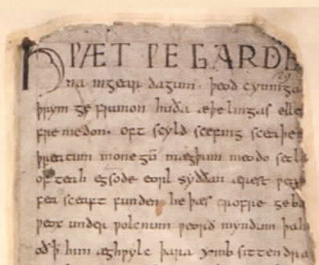 HǷÆT ǷE GARDE
na in gear dagum. þeod cyninga
þrym ge frunon huða æþelingas elle
fremedon. oft scyld scefing sceaþe
þreatum monegū mægþum meodo setl
of teah egsode eorl syððan ærest ƿea
feasceaft funden he þæs frofre geba
ƿeox under ƿolcnum ƿeorð myndum þah
oðþ him æghƿylc þara ymb sittendra